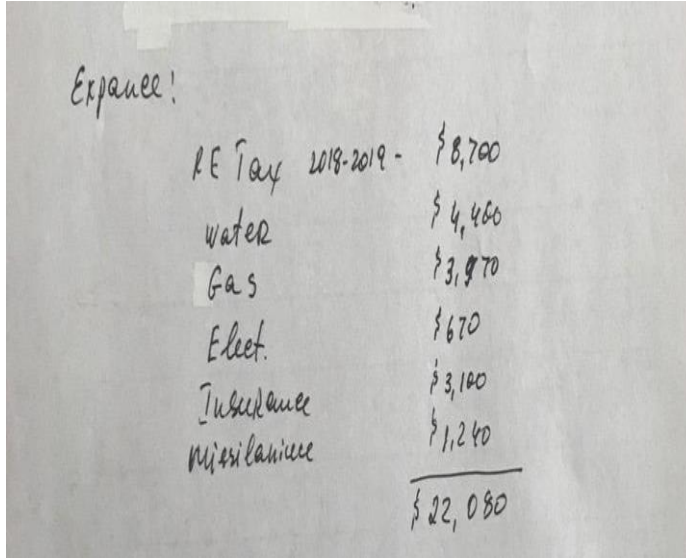 Expance!
RE Tax 2018-2019- $8,700
water $4,400
Gas $3,970
Elect. $670
Insurance $3,100
$1,240
$22,080